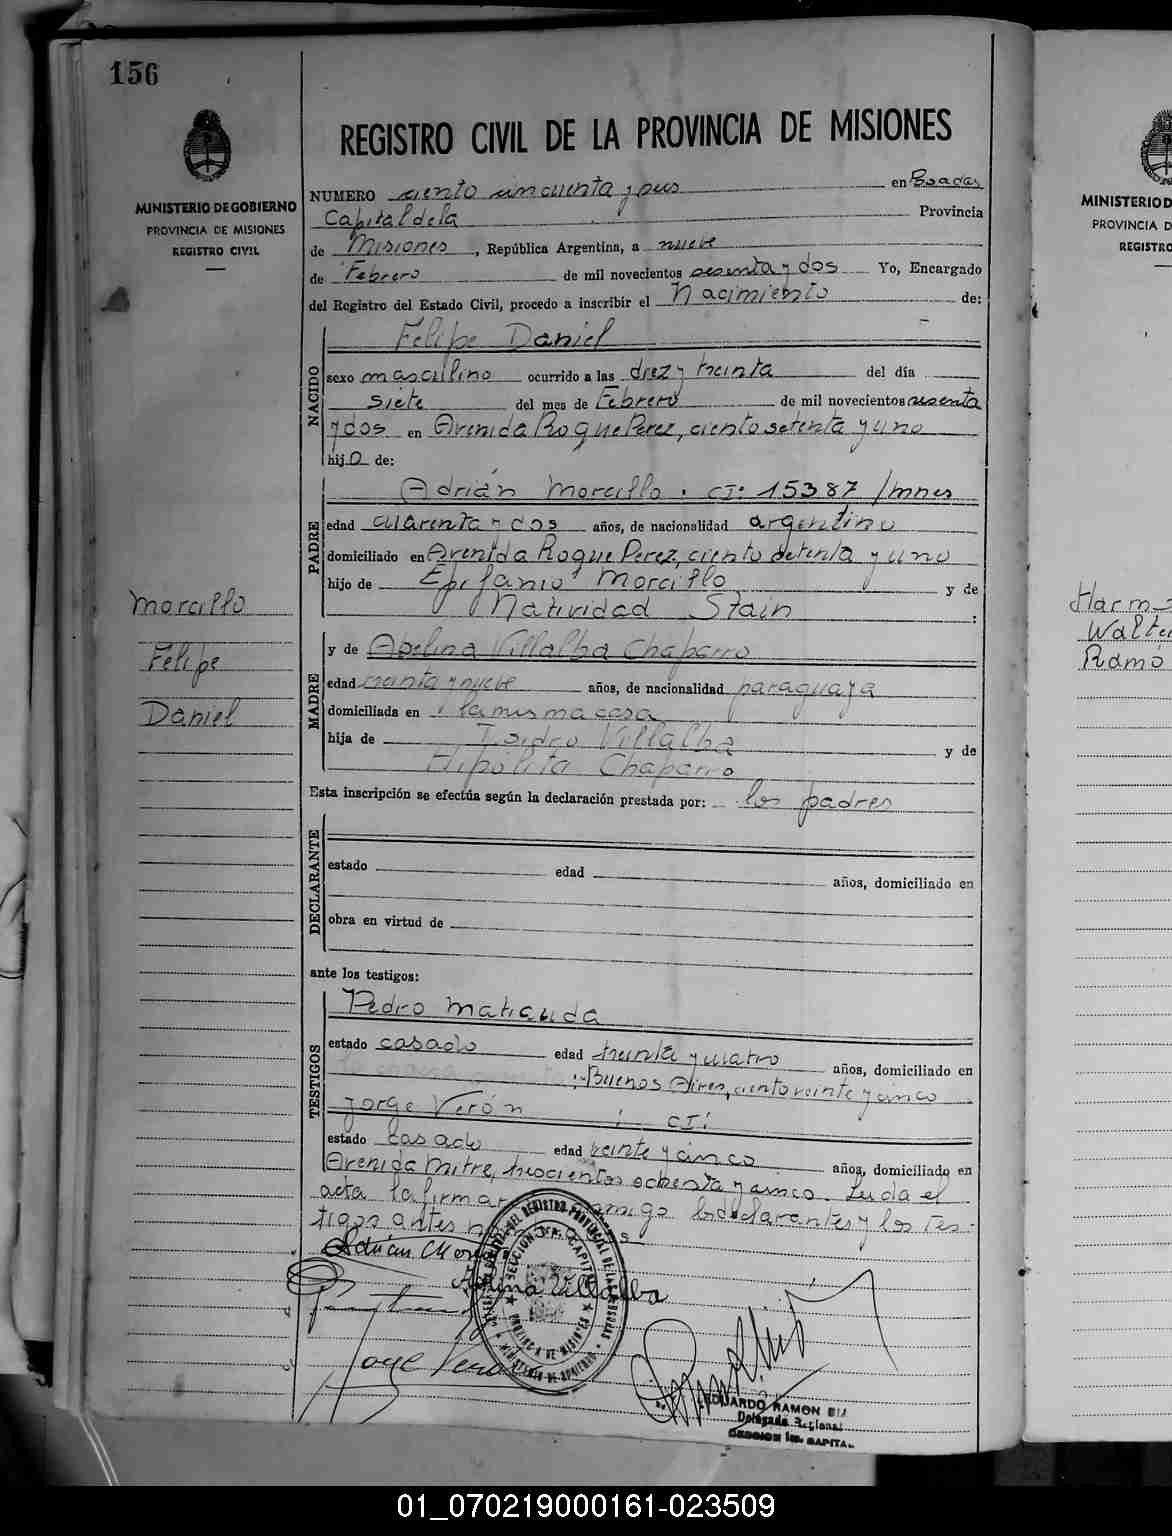 156
REGISTRO CIVIL DE LA PROVINCIA DE MISIONES
MINISTERIO DE GOBIERNO
PROVINCIA DE MISIONES
REGISTRO CIVIL
NUMERO ciento cincuenta y seis en Posadas
Capital de la Provincia
de Misiones, República Argentina, a nueve
de Febrero de mil novecientos sesenta y dos Yo, Encargado
del Registro del Estado Civil, procedo a inscribir el Nacimiento de:
NACIDO
Felipe Daniel
sexo masculino ocurrido a las diez y treinta del día
siete del mes de Febrero de mil novecientos sesenta
y dos en Avenida Roque Perez, ciento setenta y uno
hijo de:
PADRE
Adrián Morcillo. CI: 15387/mnes
edad cuarenta y dos años, de nacionalidad argentino
domiciliado en Avenida Roque Perez, ciento setenta y uno
hijo de Epifanio Morcillo y de
Natividad Stain :
Morcillo
Felipe
Daniel
MADRE
y de Abelina Villalba Chaparro
edad treinta y nueve años, de nacionalidad paraguaya
domiciliada en la misma casa
hija de Isidro Villalba y de
Hipólita Chaparro
Esta inscripción se efectúa según la declaración prestada por: los padres
DECLARANTE
estado edad años, domiciliado en
obra en virtud de
ante los testigos:
TESTIGOS
Pedro Matiauda
estado casado edad treinta y cuatro años, domiciliado en
Buenos Aires, ciento veinte y cinco
Jorge Verón CI:
estado casado edad veinte y cinco años, domiciliado en
Avenida Mitre, trescientos ochenta y cinco. Leida el
acta la firman conmigo los declarantes y los tes-
tigos antes
Adrián Morcillo
Abelina Villalba
Jorge Verón
SECCION 1ra. CAPITAL
PROVINCIA DE MISIONES
MINISTERIO DE GOBIERNO
EDUARDO RAMON
Delegado Regional
SECCION 1ra. CAPITAL
MINISTERIO D
PROVINCIA D
REGISTRO
Walte
Ramó
01_070219000161-023509